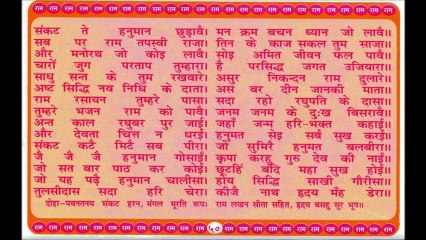 राम राम राम राम राम राम राम राम राम राम राम राम राम राम राम
संकट ते हनुमान छुड़ावै। मन क्रम बचन ध्यान जो लावै॥
सब पर राम तपस्वी राजा। तिन के काज सकल तुम साजा॥
और मनोरथ जो कोई लावै। सोइ अमित जीवन फल पावै॥
चारों जुग परताप तुम्हारा। है परसिद्ध जगत उजियारा॥
साधु सन्त के तुम रखवारे। असुर निकन्दन राम दुलारे॥
अष्ट सिद्धि नव निधि के दाता। अस बर दीन जानकी माता॥
राम रसायन तुम्हरे पासा। सदा रहो रघुपति के दासा॥
तुम्हरे भजन राम को पावै। जनम जनम के दुःख बिसरावै॥
अन्त काल रघुबर पुर जाई। जहाँ जन्म हरि-भक्त कहाई॥
और देवता चित्त न धरई। हनुमत सेइ सर्ब सुख करई॥
संकट कटै मिटै सब पीरा। जो सुमिरै हनुमत बलबीरा॥
जै जै जै हनुमान गोसाईं। कृपा करहु गुरु देव की नाईं॥
जो सत बार पाठ कर कोई। छूटहिं बंदि महा सुख होई॥
जो यह पढ़ै हनुमान चालीसा। होय सिद्धि साखी गौरीसा॥
तुलसीदास सदा हरि चेरा। कीजै नाथ हृदय मँह डेरा॥
दोहा-पवनतनय संकट हरन, मंगल मूरति रूप। राम लखन सीता सहित, हृदय बसहु सुर भूप॥
राम राम राम राम राम राम राम ५० राम राम राम राम राम राम राम